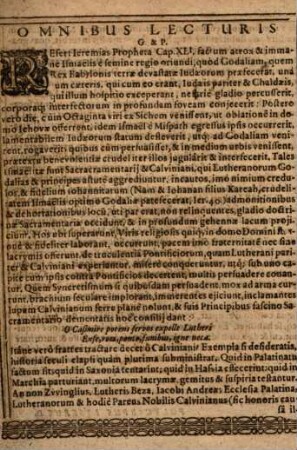 OMNIBUS LECTURIS
G & P.
REfert Ieremias Propheta Cap. XLI. factum atrox & imma-
ne Ismaelis è semine regio oriundi, quod Godaliam, quem
Rex Babylonis terræ devastatæ Iudæorum præfecerat, unà
cum cæteris, qui cum eo erant, Iudæis pariter & Chaldæis,
qui illum hospitio exceperant, nefariè gladio percusserit,
corporaq; interfectorum in profundam foveam conjecerit: Postero
verò die, cum Octaginta viri ex Sichem venissent, ut oblationem in do-
mo Jehovæ offerrent, idem Ismael è Mispah egressus ipsis occurrerit,
lamentabilem Iudæorum statum defleverit, utq; ad Godaliam veni-
rent, rogaverit: quibus cum paruissent, & in medium urbis venissent,
prætextu benevolentiæ crudeliter illos jugulârit & interfecerit. Tales
Ismaelitæ sunt Sacramentarii & Calviniani, qui Lutheranorum Go-
dalias & principes astutè aggrediuntur, incautos, imò nimium credu-
los, & fidelium Iohannitarum (Nam & Iohanan filius Kareah, crudeli-
tatem Ismaelis optimo Godaliæ patefecerat, Ier. 40.) admonitionibus
& dehortationibus locū, uti par erat, non relinquentes, gladio doctri-
næ Sacramentariæ occidunt, & in profundum gehennæ lacum proji-
ciunt. Hoc ubi superavere, Viris religiosis, qui in domo Domini ri-
tuè & fideliter laborant, occurrunt, pacem imò fraternitatē nec sua
lacrymis offerunt, de truculentia Pontificiorum, quam Lutherani pari-
ter & Calviniani experiantur, miserè conqueruntur, utq; sub uno ca-
pite cum ipsis contra Pontificios decertent, multis persuadere conan-
tur. Quem Syncretismum si quibusdam persuadent, mox ad arma cur-
runt, brachium seculare implorant, immerentes ejiciunt, inclamantes
nequam Calvinianum ferre planè nolunt, & suis Principibus fascino Sa-
cramentario dementatis hoc consilij dant:
O Casimire potens servos expelle Lutheri
Ense, rota, ponto, funibus, igne neca.
Itáne verò fratres tractare decet ô Calviniani? Exempla si desideratis,
historia seculi elapsi quàm plurima subministrat. Quid in Palatinatu
factum sit: quid in Saxonia tentatũ: quid in Hassia effecerint: quid in
Marchia parturiant, multorum lacrymæ gemitus & suspiria testantur.
An non Zvvinglius, Lutheris Beza, Iacobs Andreæ Ecclesia Palatina
Lutheranorum & hodiè Pareus Nobilis Calvinianus (sic honoris cau-
sâ il-